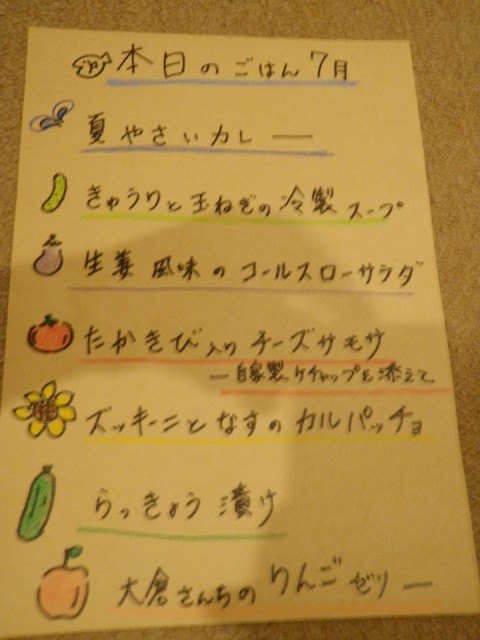 本日のごはん7月
夏やさいカレー
きゅうりと玉ねぎの冷製スープ
生姜風味のコールスローサラダ
たかきび入りチーズサモサ
ー自家製ケチャップを添えて
ズッキーニとなすのカルパッチョ
らっきょう漬け
大倉さんちのりんごゼリー